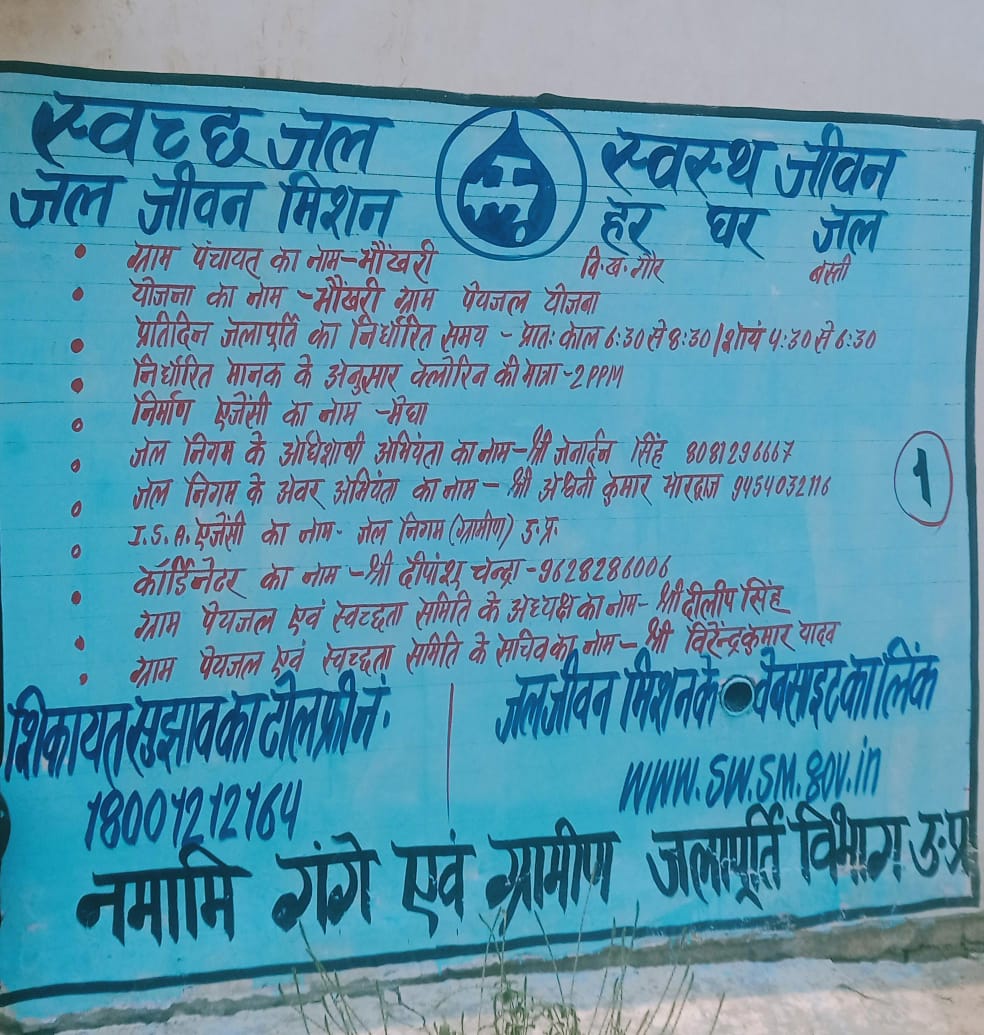 स्वच्छ जल
स्वस्थ जीवन
जल जीवन मिशन
हर घर जल
ग्राम पंचायत का नाम - भौंखरी वि.ख. गौर बस्ती
योजना का नाम - भौंखरी ग्राम पेयजल योजना
प्रतिदिन जलापूर्ति का निर्धारित समय - प्रातः काल 6:30 से 8:30 / शायं 4:30 से 6:30
निर्धारित मानक के अनुसार क्लोरिन की मात्रा - 2 PPM
निर्माण एजेंसी का नाम - मेघा
जल निगम के अधिशाषी अभियंता का नाम - श्री जनार्दन सिंह 8081296667
जल निगम के अवर अभियंता का नाम - श्री अश्वनी कुमार भारद्वाज 9454032116
I.S.A. एजेंसी का नाम - जल निगम (ग्रामीण) उ.प्र.
कॉर्डिनेटर का नाम - श्री दीपांशु चन्द्रा - 9628286006
ग्राम पेयजल एवं स्वच्छता समिति के अध्यक्ष का नाम - श्री दीलीप सिंह
ग्राम पेयजल एवं स्वच्छता समिति के सचिव का नाम - श्री विरेन्द्र कुमार यादव
1
शिकायत सुझाव का टोल फ्री नं.
18001212164
जल जीवन मिशन के वेबसाइट का लिंक
www.sw.sm.gov.in
नमामि गंगे एवं ग्रामीण जलापूर्ति विभाग उ.प्र